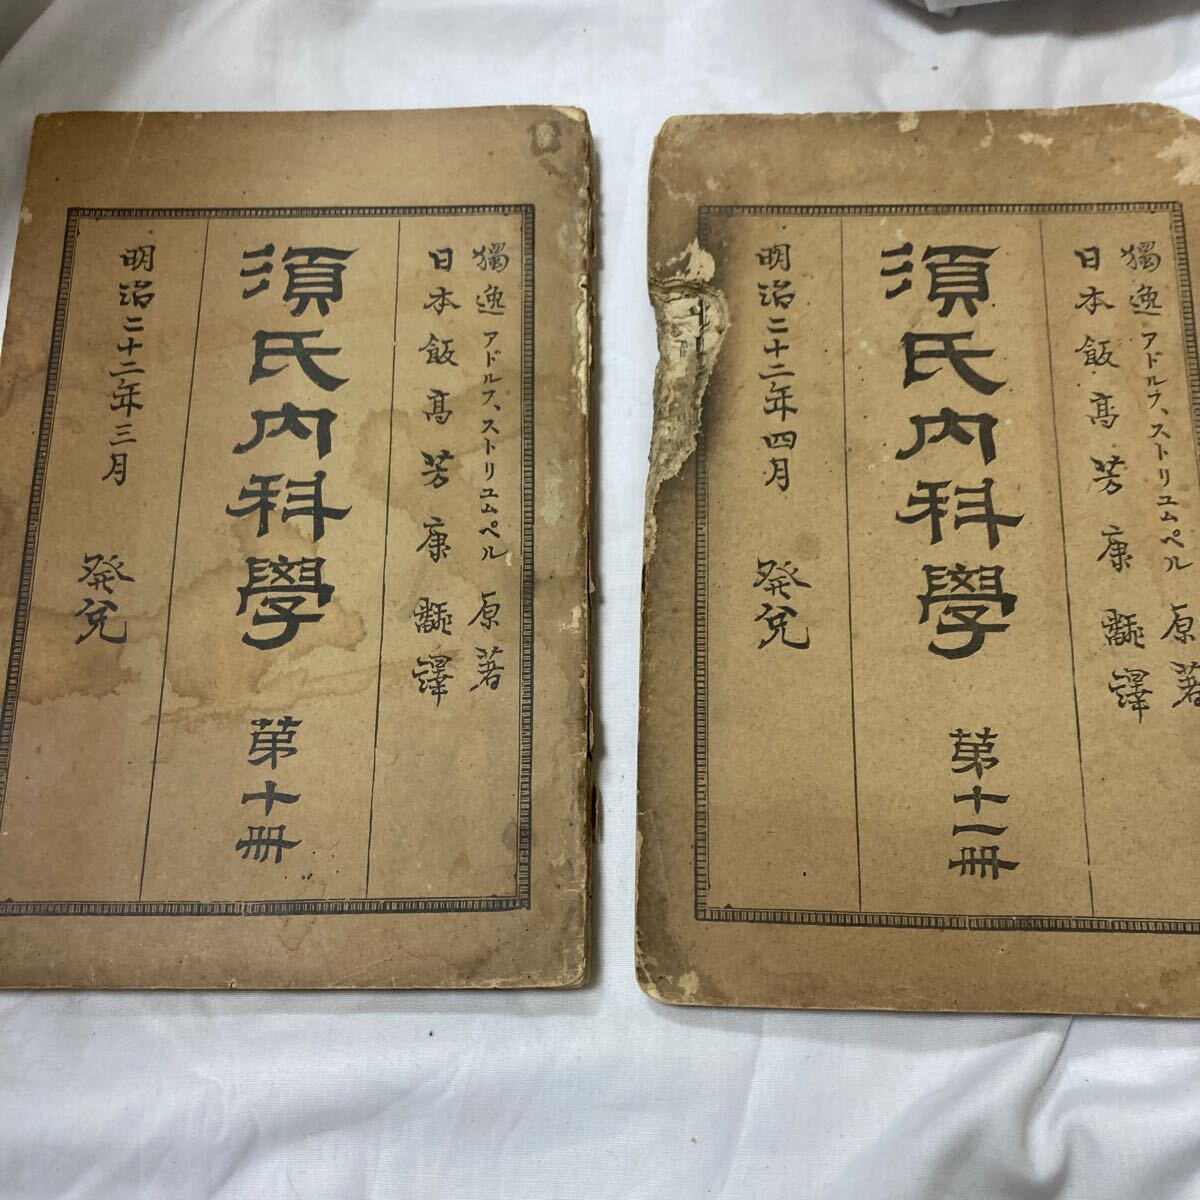 獨逸アドルフ、ストリユムペル原著
日本飯高芳康飜譯
須氏內科學 第十冊
明治二十二年三月 発兌
獨逸アドルフ、ストリユムペル原著
日本飯高芳康飜譯
須氏內科學 第十一冊
明治二十二年四月 発兌